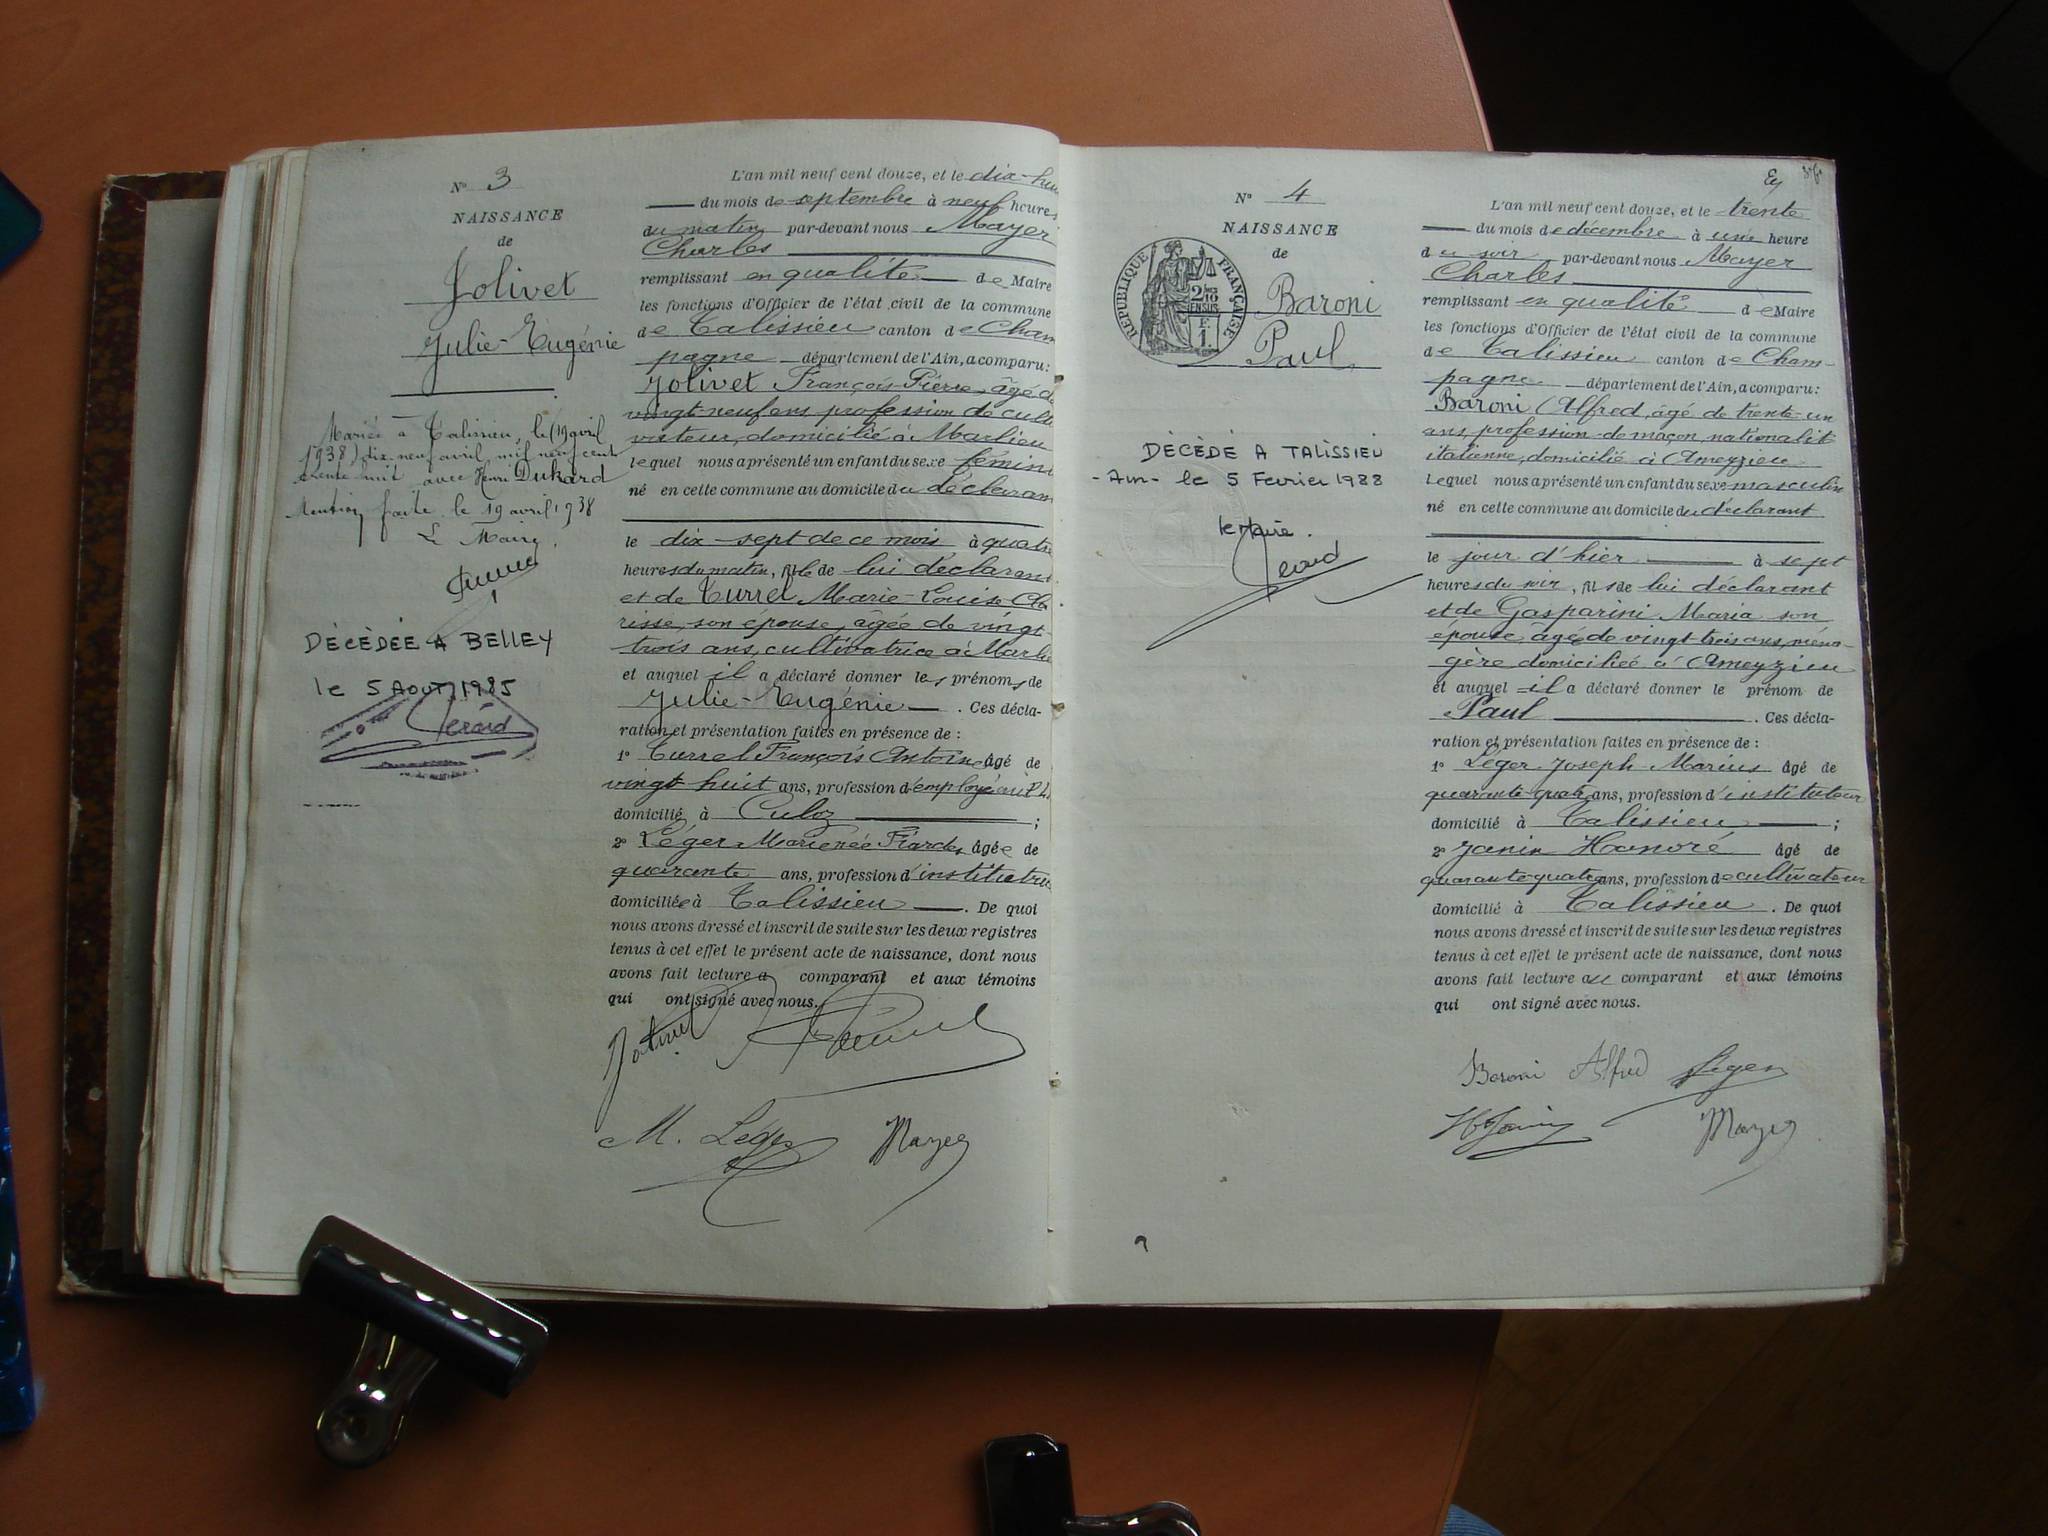 N° 3
NAISSANCE
de
Jolivet
Julie-Eugénie
Mariée à Talissieu, le (19 avril
1938) dix neuf avril mil neuf cent
trente huit avec Henri Dukard
Mention faite le 19 avril 1938
Le Maire,
DÉCÉDÉE A BELLEY
le 5 AOUT 1985
Gerard
L'an mil neuf cent douze, et le dix-hui
du mois de septembre à neuf heures
du matin par-devant nous Mayer
Charles
remplissant en qualité de Maire
les fonctions d'Officier de l'état civil de la commune
de Talissieu canton de Cham
pagne département de l'Ain, a comparu:
Jolivet François Pierre, âgé de
vingt-neuf ans profession de culti
vateur, domicilié à Marlieu
lequel nous a présenté un enfant du sexe fémini
né en cette commune au domicile du déclaran
le dix-sept de ce mois à quatre
heures du matin, fille de lui déclarant
et de Turrel Marie-Louise Cla
risse, son épouse, âgée de vingt
trois ans, cultivatrice à Marli
et auquel il a déclaré donner les prénoms de
Julie-Eugénie . Ces décla-
ration et présentation faites en présence de :
1° Turrel François Antoine âgé de
vingt huit ans, profession d'employé au P.L.
domicilié à Culoz ;
2° Léger Marie née âgée de
quarante ans, profession d'institutric
domiciliée à Talissieu . De quoi
nous avons dressé et inscrit de suite sur les deux registres
tenus à cet effet le présent acte de naissance, dont nous
avons fait lecture a comparant et aux témoins
qui ont signé avec nous.
Jolivet
M. Léger Mayer
N° 4
NAISSANCE
de
RÉPUBLIQUE FRANÇAISE
2 10 EN SUS
F. 1.
Baroni
Paul
DÉCÉDÉ A TALISSIEU
-Ain- le 5 Fevrier 1988
le Maire.
Gerard
L'an mil neuf cent douze, et le trente
du mois de décembre à une heure
du soir par-devant nous Mayer
Charles
remplissant en qualité de Maire
les fonctions d'Officier de l'état civil de la commune
de Talissieu canton de Cham-
pagne département de l'Ain, a comparu:
Baroni Alfred, âgé de trente-un
ans, profession de maçon, nationalit
italienne, domicilié à Ameyzieu
lequel nous a présenté un enfant du sexe masculin
né en cette commune au domicile du déclarant
le jour d'hier à sept
heures du soir, fils de lui déclarant
et de Gasparini Maria son
épouse, âgé de vingt trois ans, ména-
gère domiciliée à Ameyzieu
et auquel il a déclaré donner le prénom de
Paul . Ces décla-
ration et présentation faites en présence de :
1° Léger Joseph Marius âgé de
quarante quatre ans, profession d'instituteur
domicilié à Talissieu ;
2° Janin Honoré âgé de
quarante quatre ans, profession de cultivateur
domicilié à Talissieu . De quoi
nous avons dressé et inscrit de suite sur les deux registres
tenus à cet effet le présent acte de naissance, dont nous
avons fait lecture au comparant et aux témoins
qui ont signé avec nous.
Baroni Alfred Léger
H Janin Mayer